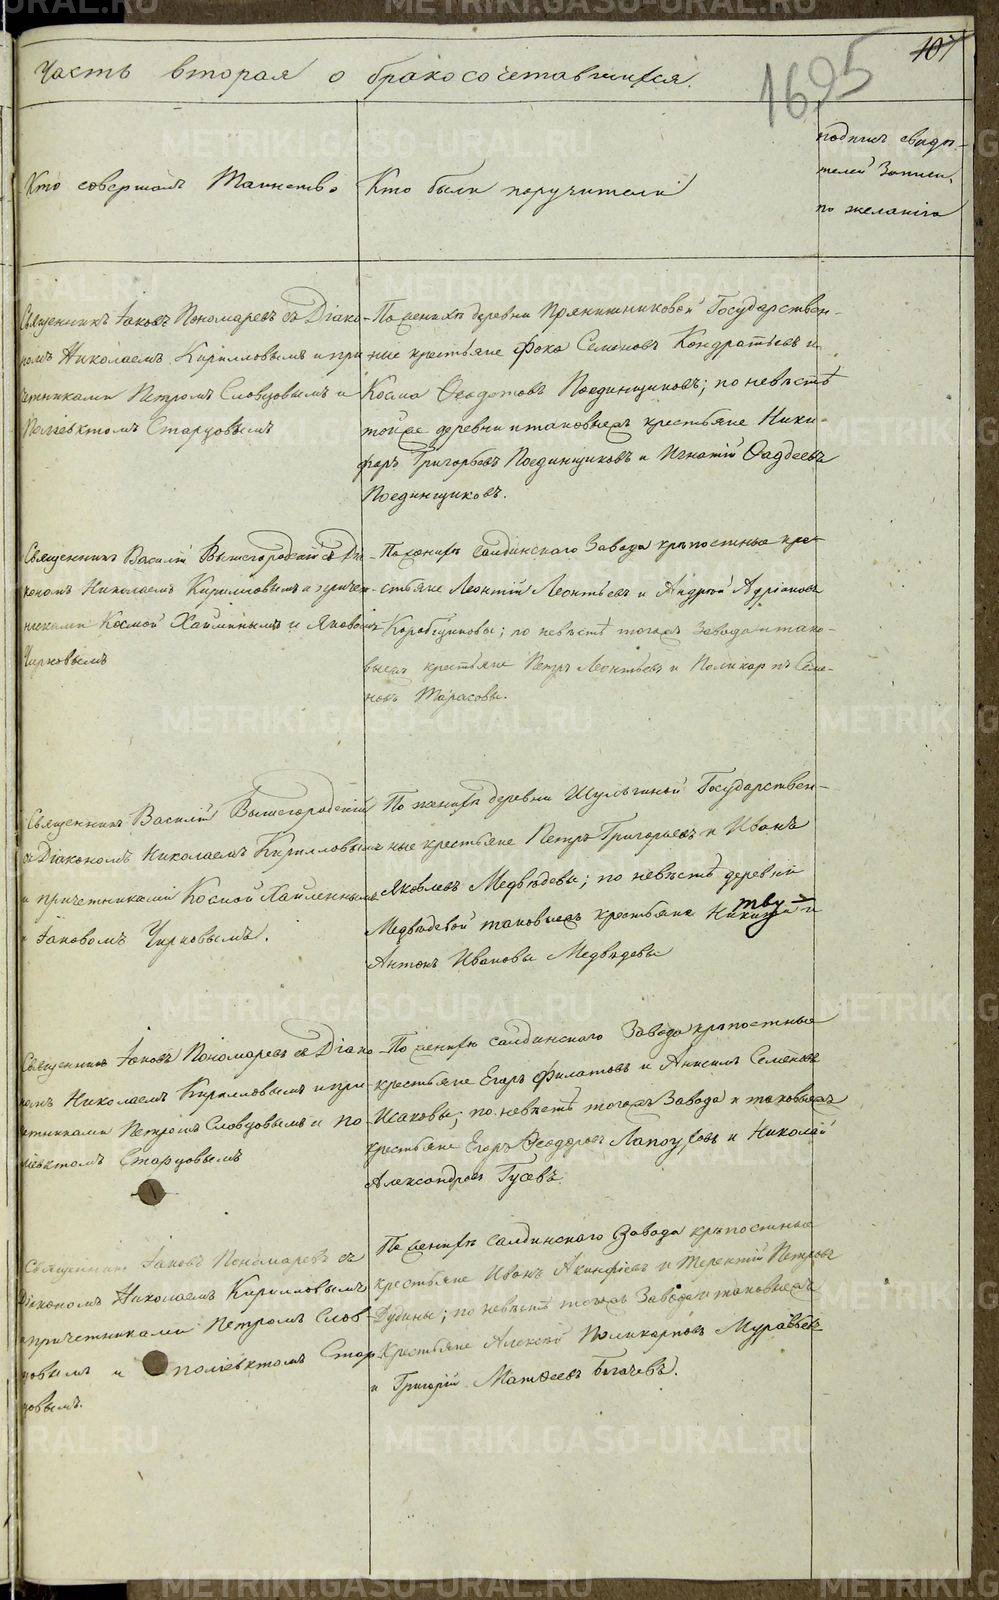 107
1695
Часть вторая о бракосочетавшихся.
Кто совершалъ Таинство
Кто были поручители
подпись свидѣ-
телей записи,
по желанію
Священникъ Іаковъ Пономаревъ съ Діако-
номъ Николаемъ Кирилловымъ и при
четниками Петромъ Словцовымъ и
Поліевктомъ Старцовымъ
По женихѣ деревни Прянишниковой Государствен-
ные крестьяне Фока Семеновъ Кондратьевъ и
Косма Ѳеодотовъ Поединщиковъ; по невѣстѣ
тойже деревни и таковыежъ крестьяне Ники-
форъ Григорьевъ Поединщиковъ и Игнатій Ѳаддеевъ
Поединщиковъ.
Священникъ Василій Вышегородскій съ Діа
кономъ Николаемъ Кирилловымъ и причет
никами Космой Хайминымъ и Яковомъ
Чирковымъ
По женихѣ Салдинскаго Завода крѣпостные кре-
стьяне Леонтій Леонтьевъ и Андрей Адріановъ
Коробщиковы; по невѣстѣ тогожъ Завода и тако-
выежъ крестьяне Петръ Леонтьевъ и Поликарпъ Семе-
новъ Тарасовы.
Священникъ Василій Вышегородскій
съ Діакономъ Николаемъ Кирилловымъ
и причетниками Космой Хайминымъ
и Іаковомъ Чирковымъ.
По женихѣ деревни Шульгиной Государствен-
ные крестьяне Петръ Григорьевъ и Иванъ
Яковлевъ Медвѣдевы; по невѣстѣ деревни
Медвѣдевой таковыежъ крестьяне Никита и
Антонъ Ивановы Медвѣдевы
Священникъ Іаковъ Пономаревъ съ Діако
номъ Николаемъ Кирилловымъ и при
четниками Петромъ Словцовымъ и По
ліевктомъ Старцовымъ
По женихѣ Салдинскаго Завода крѣпостные
крестьяне Егоръ Филатовъ и Анисимъ Семеновъ
Исаковы; по невѣстѣ тогожъ Завода и таковыежъ
крестьяне Егоръ Ѳеодоровъ Лапоуховъ и Николай
Александровъ Гусевъ.
Священникъ Іаковъ Пономаревъ съ
Діакономъ Николаемъ Кирилловымъ
и причетниками Петромъ Слов-
цовымъ и Поліевктомъ Стар
цовымъ.
По женихѣ Салдинскаго Завода крѣпостные
крестьяне Иванъ Акинфіевъ и Терентій Петровъ
Дудины; по невѣстѣ тогожъ Завода и таковыежъ
крестьяне Алексѣй Поликарповъ Муравьевъ
и Григорій Матвеевъ Богачевъ.